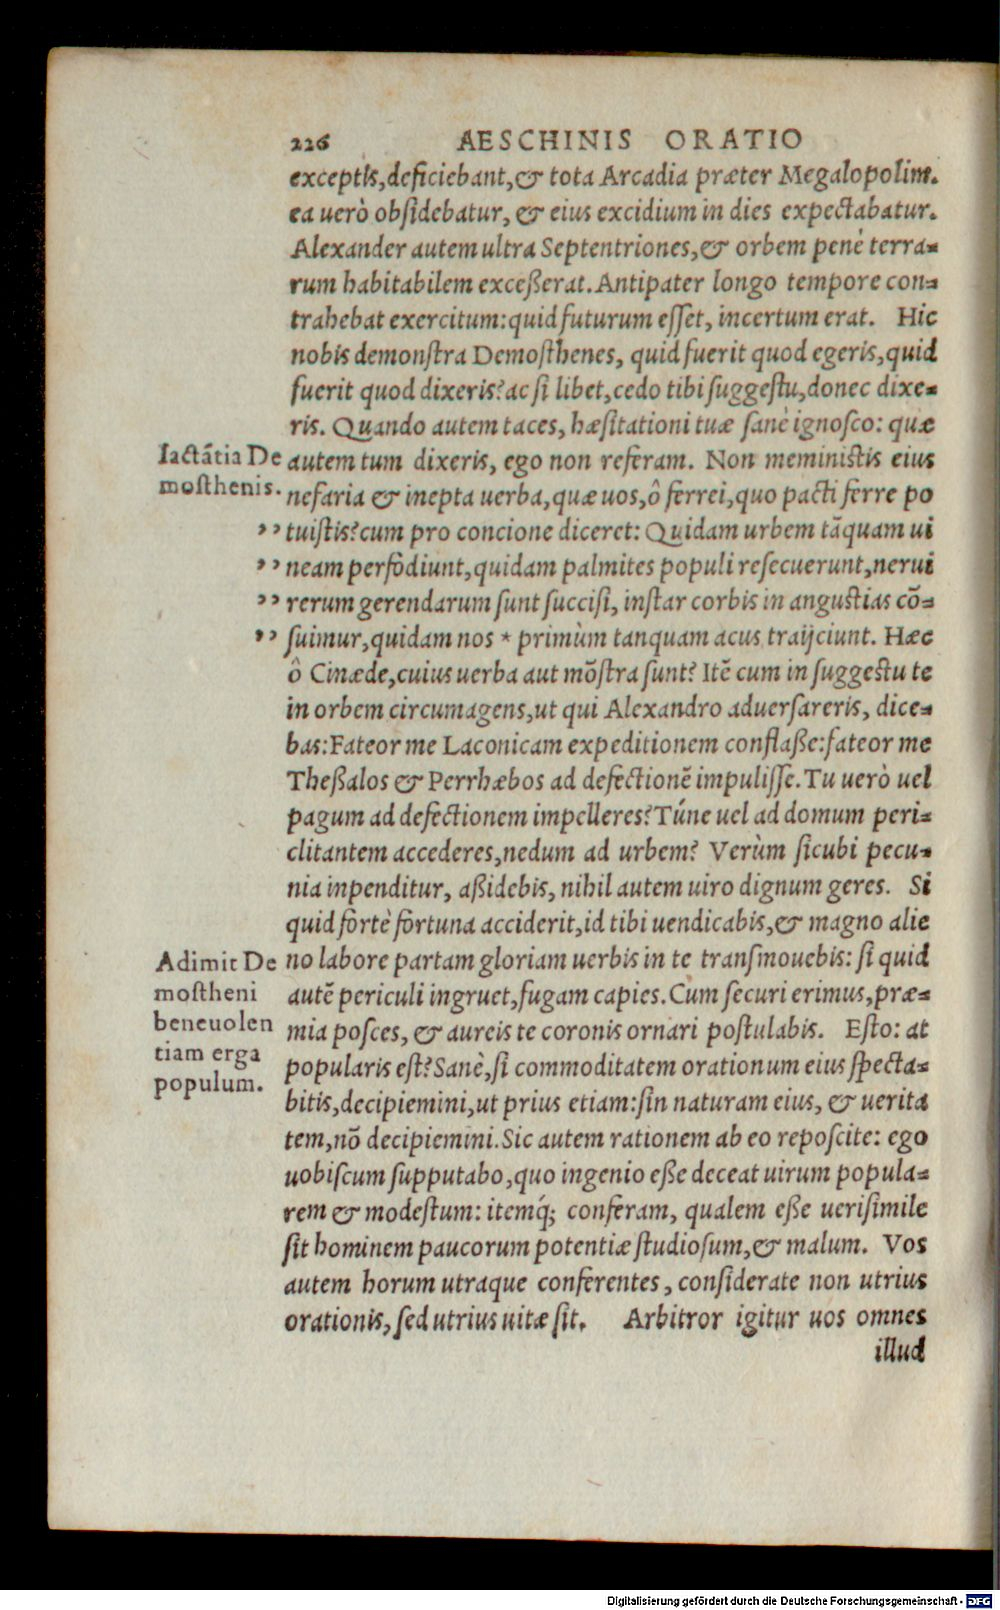 226 AESCHINIS ORATIO
exceptis, deficiebant, & tota Arcadia præter Megalopolim.
ea uerò obsidebatur, & eius excidium in dies expectabatur.
Alexander autem ultra Septentriones, & orbem penè terra=
rum habitabilem exceßerat. Antipater longo tempore con=
trahebat exercitum: quid futurum esset, incertum erat. Hic
nobis demonstra Demosthenes, quid fuerit quod egeris, quid
fuerit quod dixeris? ac si libet, cedo tibi suggestu, donec dixe=
ris. Quando autem taces, hæsitationi tuæ sanè ignosco: quæ
Iactãtia De
mosthenis.
autem tum dixeris, ego non referam. Non meministis eius
nefaria & inepta uerba, quæ uos, ô ferrei, quo pacti ferre po
,, tuistis? cum pro concione diceret: Quidam urbem tãquam ui
,, neam perfodiunt, quidam palmites populi resecuerunt, nerui
,, rerum gerendarum sunt succisi, instar corbis in angustias cõ=
,, suimur, quidam nos * primùm tanquam acus traijciunt. Hæc
ô Cinæde, cuius uerba aut mõstra sunt? Itẽ cum in suggestu te
in orbem circumagens, ut qui Alexandro aduersareris, dice=
bas: Fateor me Laconicam expeditionem conflaße: fateor me
Theßalos & Perrhæbos ad defectionẽ impulisse. Tu uerò uel
pagum ad defectionem impelleres? Túne uel ad domum peri=
clitantem accederes, nedum ad urbem? Verùm sicubi pecu=
nia inpenditur, aßidebis, nihil autem uiro dignum geres. Si
quid fortè fortuna acciderit, id tibi uendicabis, & magno alie
Adimit De
mostheni
beneuolen
tiam erga
populum.
no labore partam gloriam uerbis in te transmouebis: si quid
autẽ periculi ingruet, fugam capies. Cum securi erimus, præ=
mia posces, & aureis te coronis ornari postulabis. Esto: at
popularis est? Sanè, si commoditatem orationum eius specta=
bitis, decipiemini, ut prius etiam: sin naturam eius, & uerita
tem, nõ decipiemini. Sic autem rationem ab eo reposcite: ego
uobiscum supputabo, quo ingenio eße deceat uirum popula=
rem & modestum: itemq́; conferam, qualem eße uerisimile
sit hominem paucorum potentiæ studiosum, & malum. Vos
autem horum utraque conferentes, considerate non utrius
orationis, sed utrius uitæ sit. Arbitror igitur uos omnes
illud
Digitalisierung gefördert durch die Deutsche Forschungsgemeinschaft - DFG